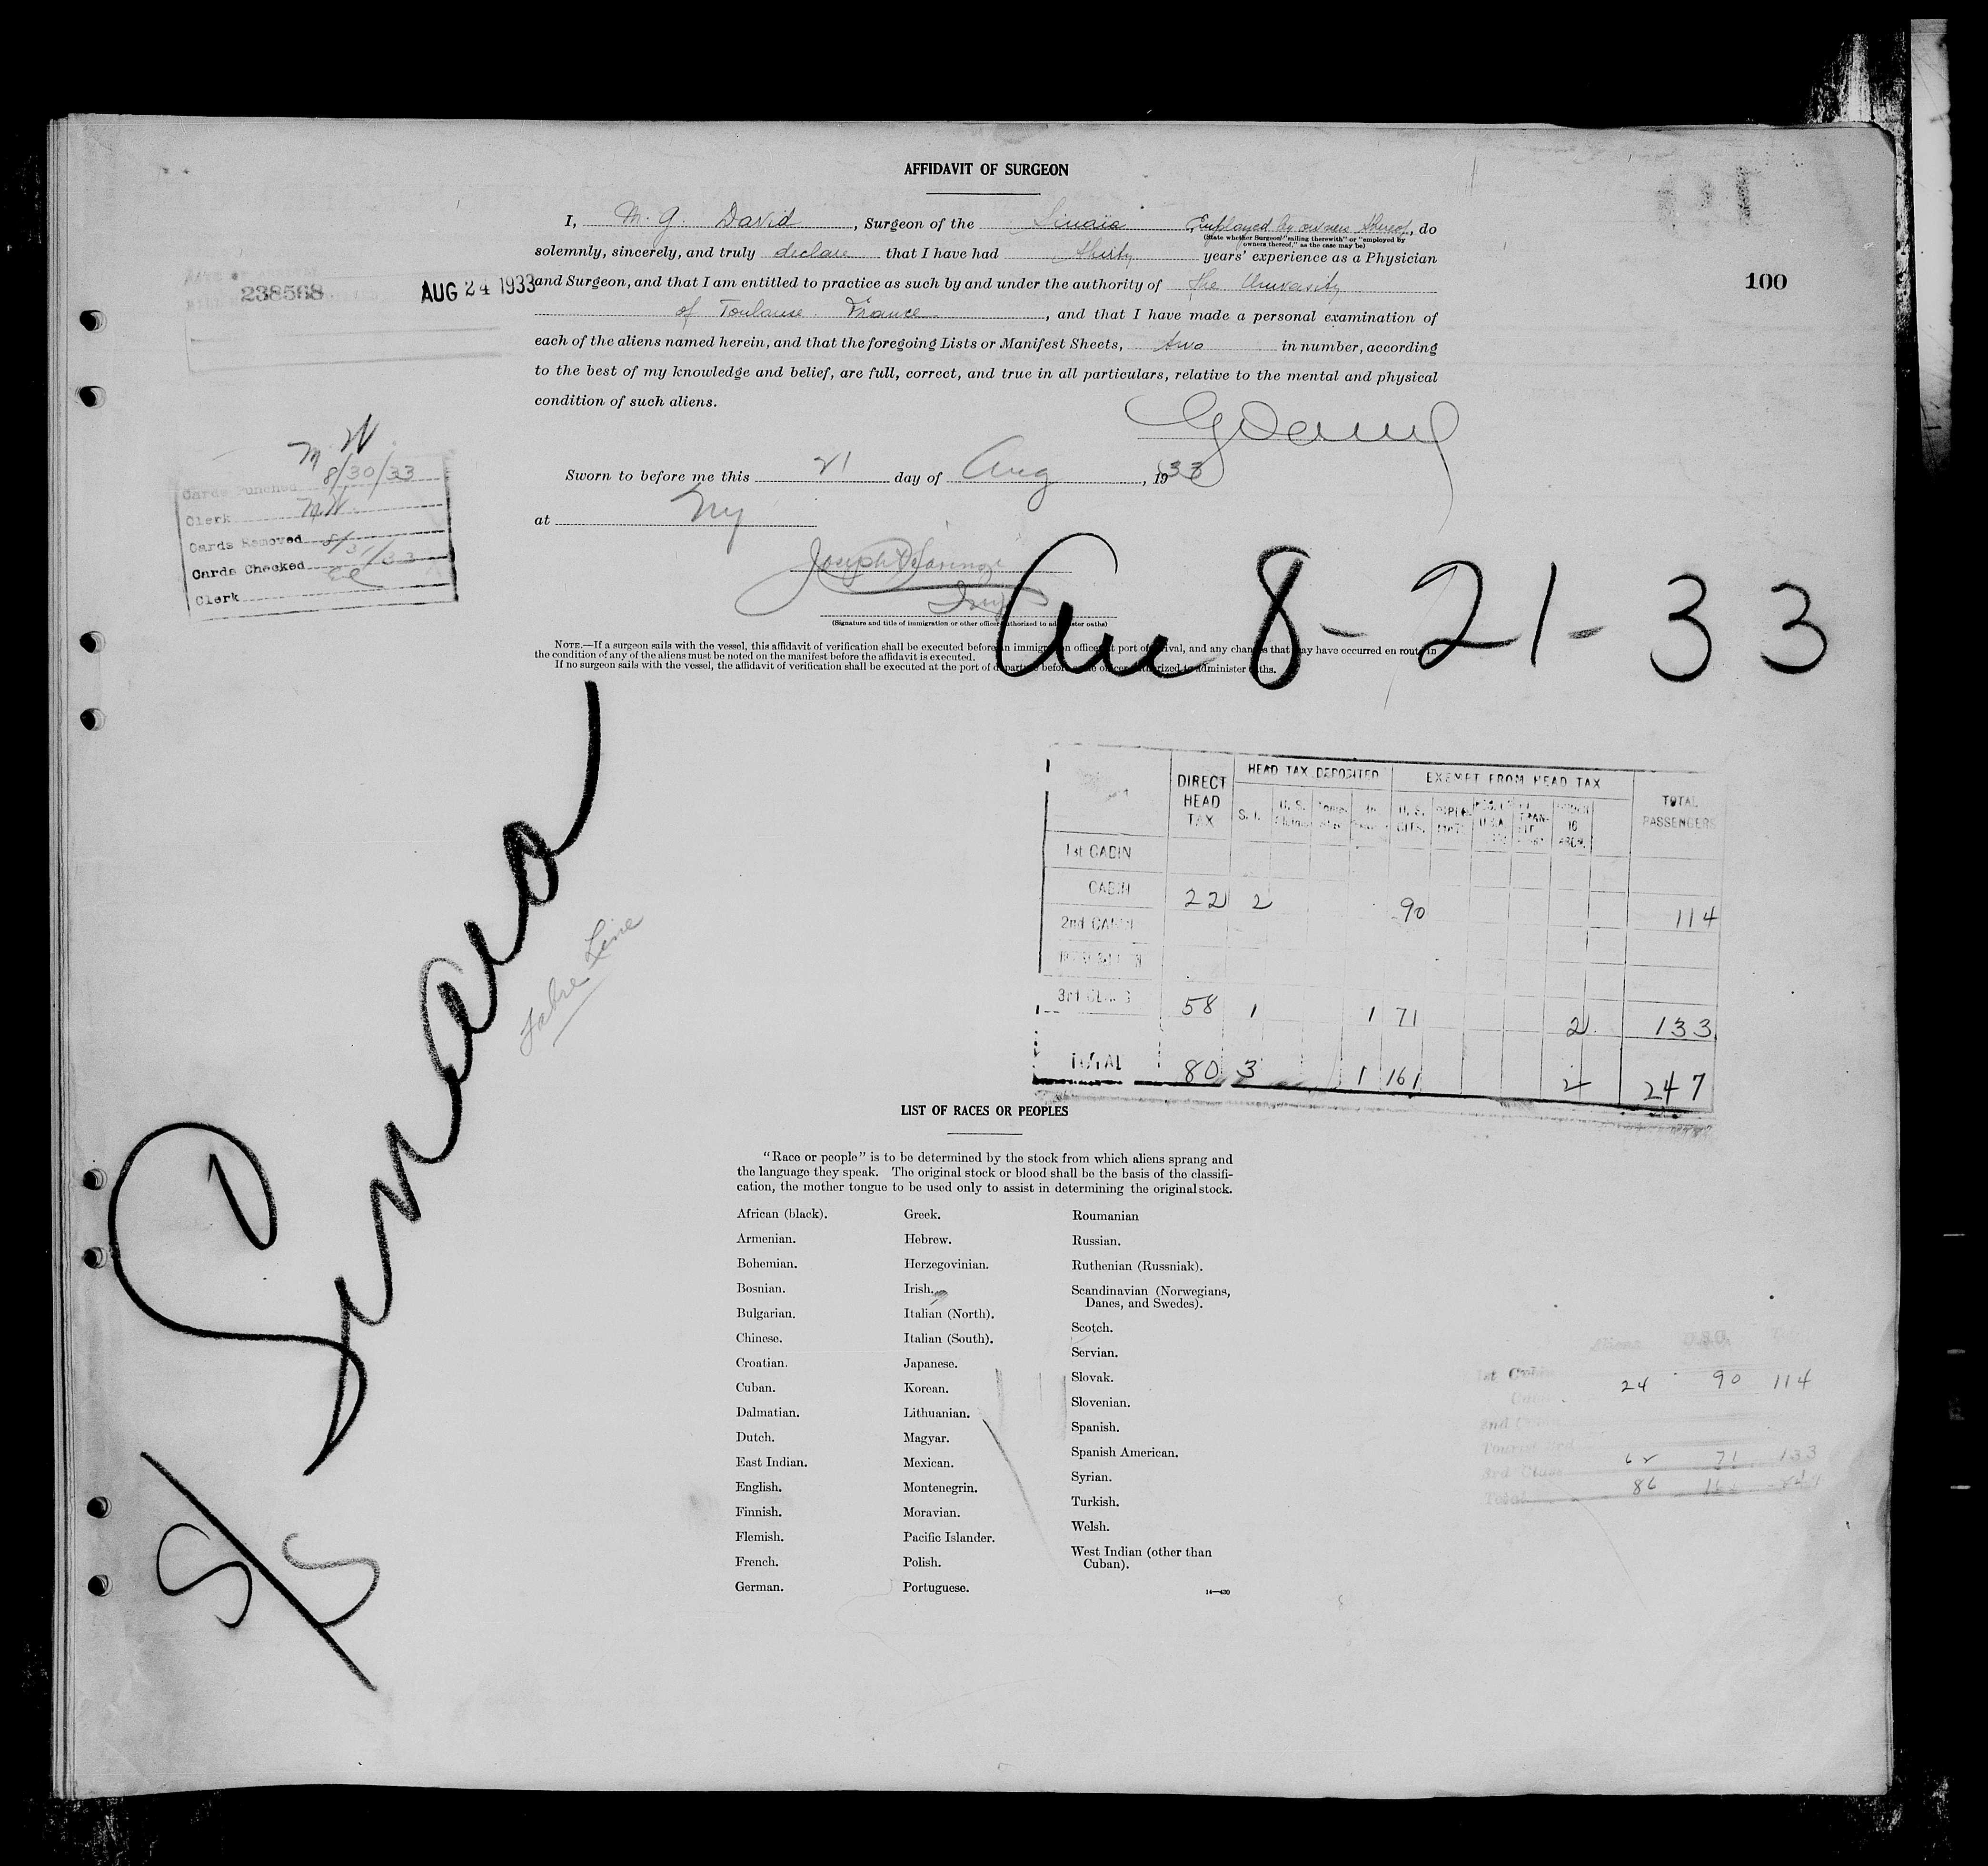 AFFIDAVIT OF SURGEON
I, M. G. David, Surgeon of the Sinaia Employed by owners thereof, do
(State whether Surgeon "sailing therewith" or "employed by
owners thereof," as the case may be)
solemnly, sincerely, and truly declare that I have had thirty years' experience as a Physician
and Surgeon, and that I am entitled to practice as such by and under the authority of the University
of Toulouse France, and that I have made a personal examination of
each of the aliens named herein, and that the foregoing Lists or Manifest Sheets, two in number, according
to the best of my knowledge and belief, are full, correct, and true in all particulars, relative to the mental and physical
condition of such aliens.
238568
AUG 24 1933
100
GDavid
Sworn to before me this 21 day of Aug, 1933
at NY
Joseph
Insp
(Signature and title of immigration or other officer authorized to administer oaths)
M.W.
Cards Punched 8/30/33
Clerk MW.
Cards Removed 8/31/33
Cards Checked
Clerk
Arr 8-21-33
NOTE.—If a surgeon sails with the vessel, this affidavit of verification shall be executed before an immigration officer at port of arrival, and any changes that may have occurred en route in
the condition of any of the aliens must be noted on the manifest before the affidavit is executed.
If no surgeon sails with the vessel, the affidavit of verification shall be executed at the port of departure before some officer authorized to administer oaths.
S/S Sinaia
Fabre Line
DIRECT HEAD TAX
HEAD TAX DEPOSITED
EXEMPT FROM HEAD TAX
TOTAL PASSENGERS
S. I. U. S. U. S. CITS. DIPLO-MATS 16
1st CABIN
CABIN 22 2 90 114
2nd CABIN
3rd CLASS 58 1 1 71 2 133
TOTAL 80 3 1 161 2 247
LIST OF RACES OR PEOPLES
"Race or people" is to be determined by the stock from which aliens sprang and
the language they speak. The original stock or blood shall be the basis of the classifi-
cation, the mother tongue to be used only to assist in determining the original stock.
African (black).
Armenian.
Bohemian.
Bosnian.
Bulgarian.
Chinese.
Croatian.
Cuban.
Dalmatian.
Dutch.
East Indian.
English.
Finnish.
Flemish.
French.
German.
Greek.
Hebrew.
Herzegovinian.
Irish.
Italian (North).
Italian (South).
Japanese.
Korean.
Lithuanian.
Magyar.
Mexican.
Montenegrin.
Moravian.
Pacific Islander.
Polish.
Portuguese.
Roumanian
Russian.
Ruthenian (Russniak).
Scandinavian (Norwegians,
Danes, and Swedes).
Scotch.
Servian.
Slovak.
Slovenian.
Spanish.
Spanish American.
Syrian.
Turkish.
Welsh.
West Indian (other than
Cuban).
14—430
Aliens U.S.C.
1st Cabin
24 90 114
2nd Cabin
Tourist 3rd
3rd Class 62 71 133
Total 86